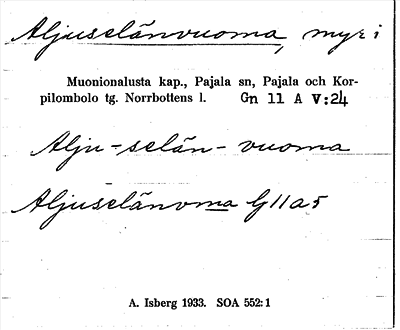 Aljuselänvuoma, myr i
Muonionalusta kap., Pajala sn, Pajala och Kor-
pilombolo tg. Norrbottens l. Gn 11 A V:24
Alju-selän-vuoma
Aljuselänvma G11a5
A. Isberg 1933. SOA 552:1